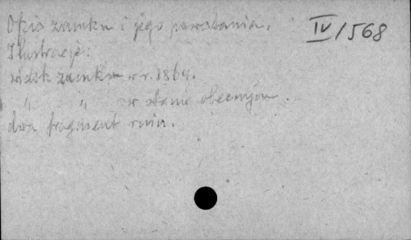 Opis zamku i jego powstania.
IV/568
Ilustracje:
widok zamku w r. 1864.
" " w stanie obecnym.
dwa fragment ruin.